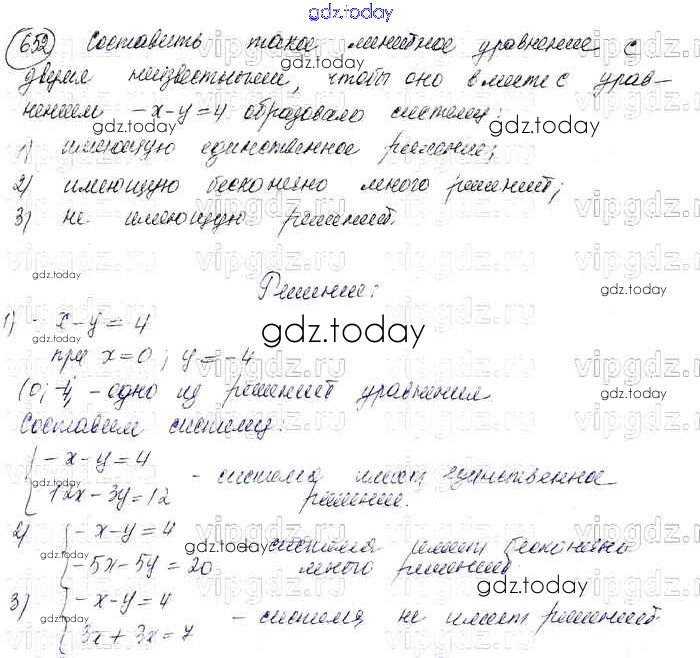 gdz.today
652 Составить такое линейное уравнение с
двумя неизвестными, чтобы оно вместе с урав-
gdz.today
нением -x-y=4 образовало систему:
gdz.today gdz.today
1) имеющую единственное решение;
2) имеющую бесконечно много решений;
vipgdz.ru vipgdz.ru vipgdz.ru
3) не имеющую решений.
gdz.today
Решение:
1) -x-y=4
gdz.today
при x=0; y=-4
(0; -4) - одно из решений уравнения
Составим систему:
{-x-y=4
12x-3y=12 - система имеет единственное
решение.
2) {-x-y=4
-5x-5y=20 - система имеет бесконечно
много решений
gdz.today gdz.today
3) {-x-y=4
3x+3x=7 - система не имеет решений.
gdz.today gdz.today